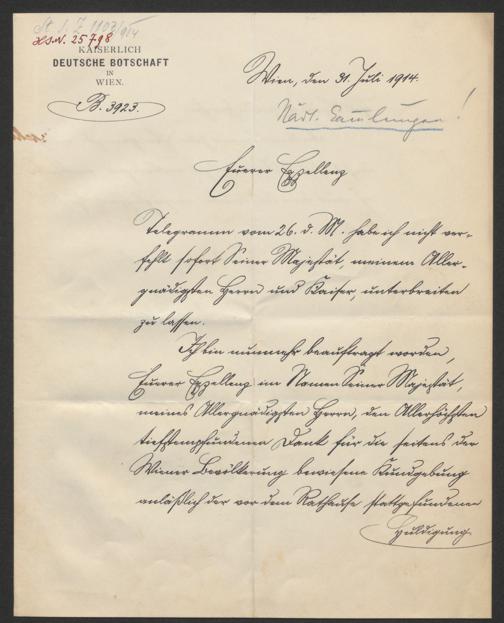 St. S. Z. 1103/914
H.S.N. 25798
KAISERLICH
DEUTSCHE BOTSCHAFT
IN
WIEN.
B. 3923.
Wien, den 31. Juli 1914.
Städt. Sammlungen!
Euerer Exzellenz
Telegramm vom 26. d. M. habe ich nicht ver-
fehlt sofort Seiner Majestät, meinem Aller-
gnädigsten Herrn und Kaiser, unterbreiten
zu lassen.
Ich bin nunmehr beauftragt worden,
Euerer Exzellenz im Namen Seiner Majestät,
meines Allergnädigsten Herrn, den Allerhöchsten
tiefstempfundenen Dank für die seitens der
Wiener Bevölkerung bewiesene Kundgebung
anläßlich der vor dem Rathause stattgefundenen
Huldigung